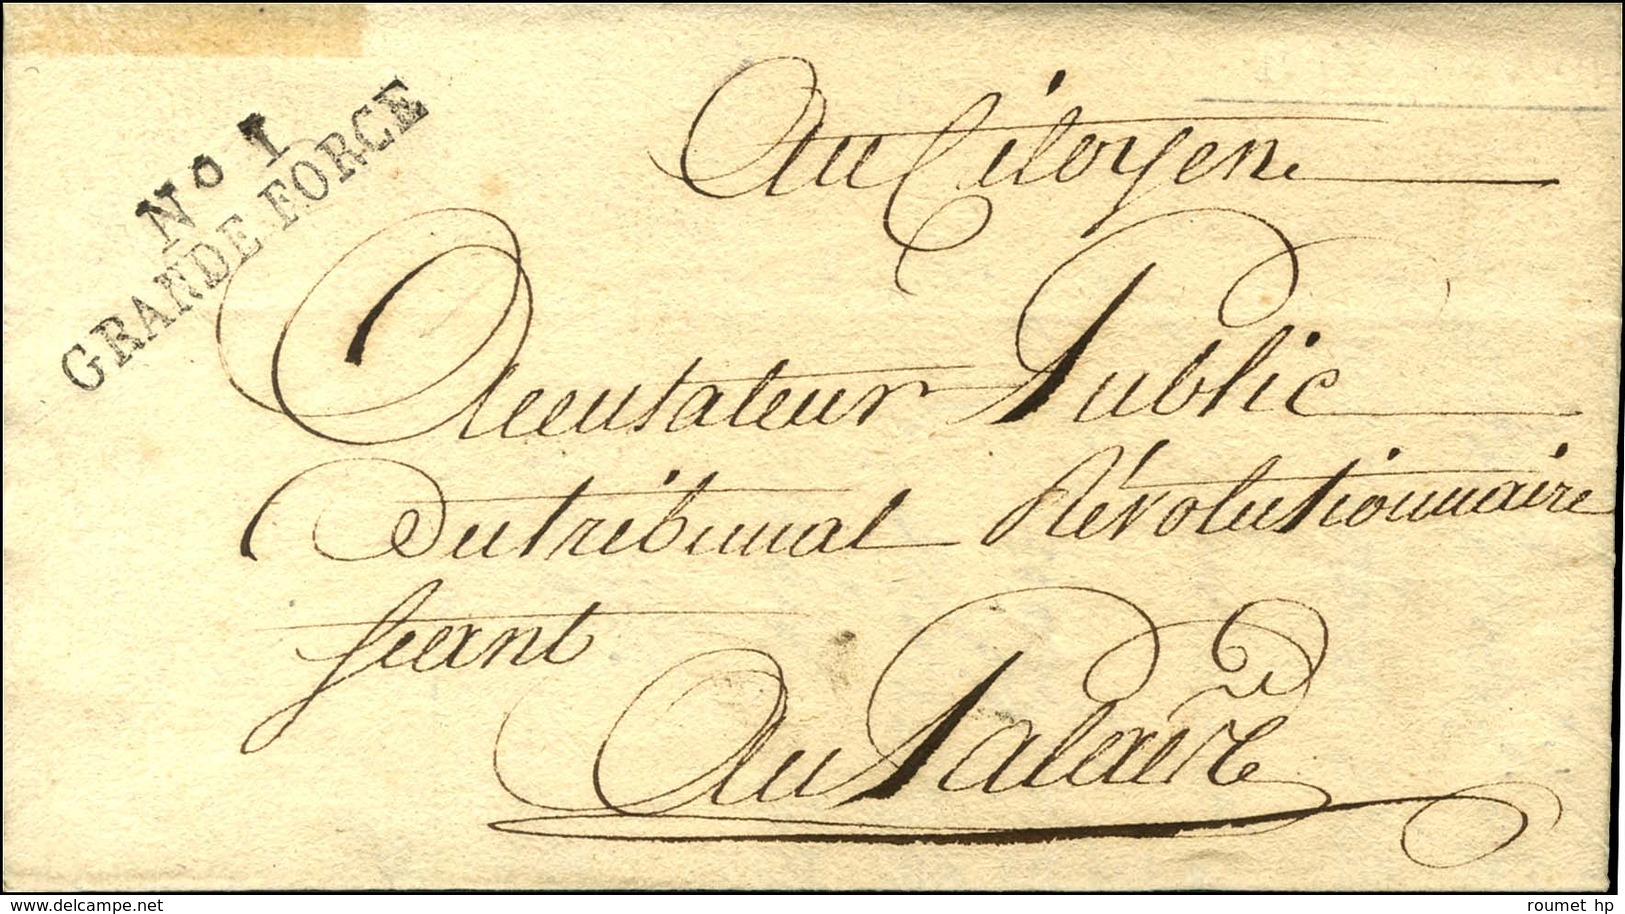 N° 1
GRANDE FORCE
Au Citoyen
Accusateur Public
Du tribunal Révolutionnaire
Seant
Au Palaix
www.delcampe.net
roumet hp